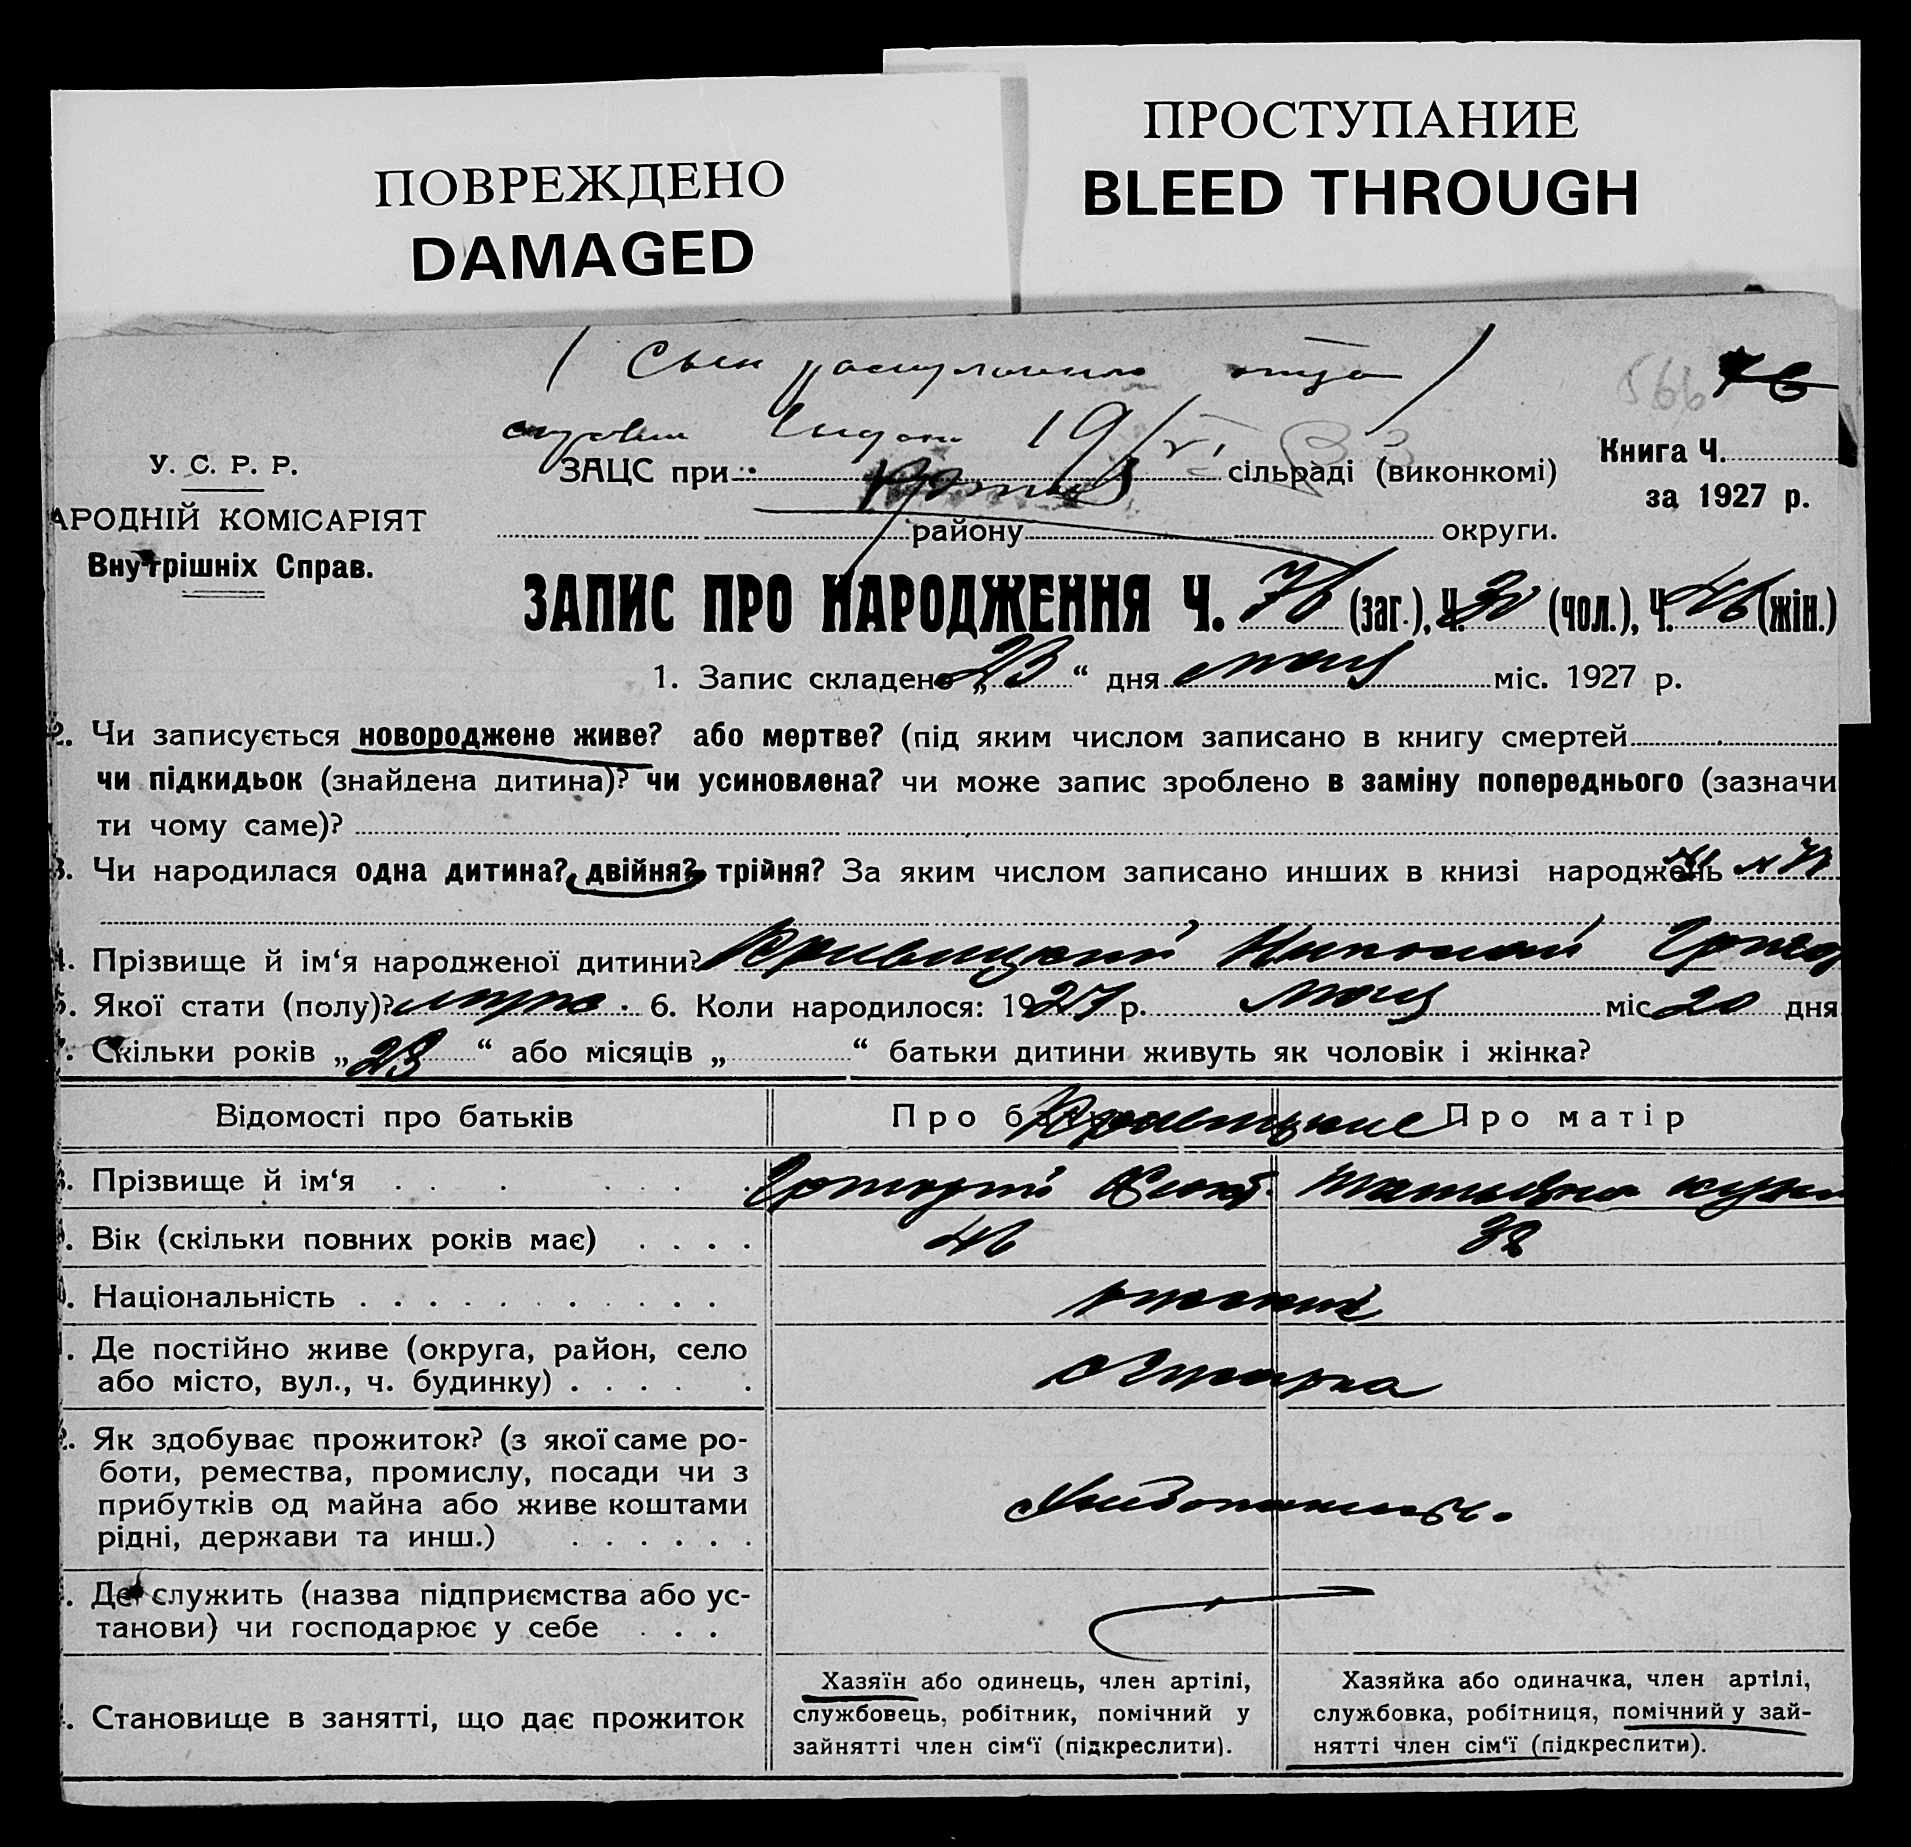 ПРОСТУПАНИЕ
BLEED THROUGH
ПОВРЕЖДЕНО
DAMAGED
( Сын отца )
566 76
19
У. С. Р. Р.
АРОДНІЙ КОМІСАРІЯТ
Внутрішніх Справ.
ЗАЦС при сільраді (виконкомі)
Книга Ч.
за 1927 р.
району округи.
ЗАПИС ПРО НАРОДЖЕННЯ Ч. 76 (заг.), Ч. 30 (чол.), Ч. 46 (жін.)
1. Запис складено „ 23 “ дня мая міс. 1927 р.
2. Чи записується новороджене живе? або мертве? (під яким числом записано в книгу смертей
чи підкидьок (знайдена дитина)? чи усиновлена? чи може запис зроблено в заміну попереднього (зазначи
ти чому саме)?
3. Чи народилася одна дитина? двійня? трійня? За яким числом записано инших в книзі народжень
4. Прізвище й ім‘я народженої дитини? Кривицкий Николай
5. Якої стати (полу)? муж. 6. Коли народилося: 1927 р. мая міс 20 дня
7. Скільки років „ 23 “ або місяців „ “ батьки дитини живуть як чоловік і жінка?
Відомості про батьків
Про б
Про матір
Прізвище й ім‘я
Вік (скільки повних років має) 46 38
Національність
Де постійно живе (округа, район, село
або місто, вул., ч. будинку)
Як здобуває прожиток? (з якої саме ро-
боти, ремества, промислу, посади чи з
прибутків од майна або живе коштами
рідні, держави та инш.)
Де служить (назва підприємства або ус-
танови) чи господарює у себе
Становище в занятті, що дає прожиток
Хазяїн або одинець, член артілі,
службовець, робітник, помічний у
зайнятті член сім‘ї (підкреслити).
Хазяйка або одиначка, член артілі,
службовка, робітниця, помічний у зай-
нятті член сім‘ї (підкреслити).